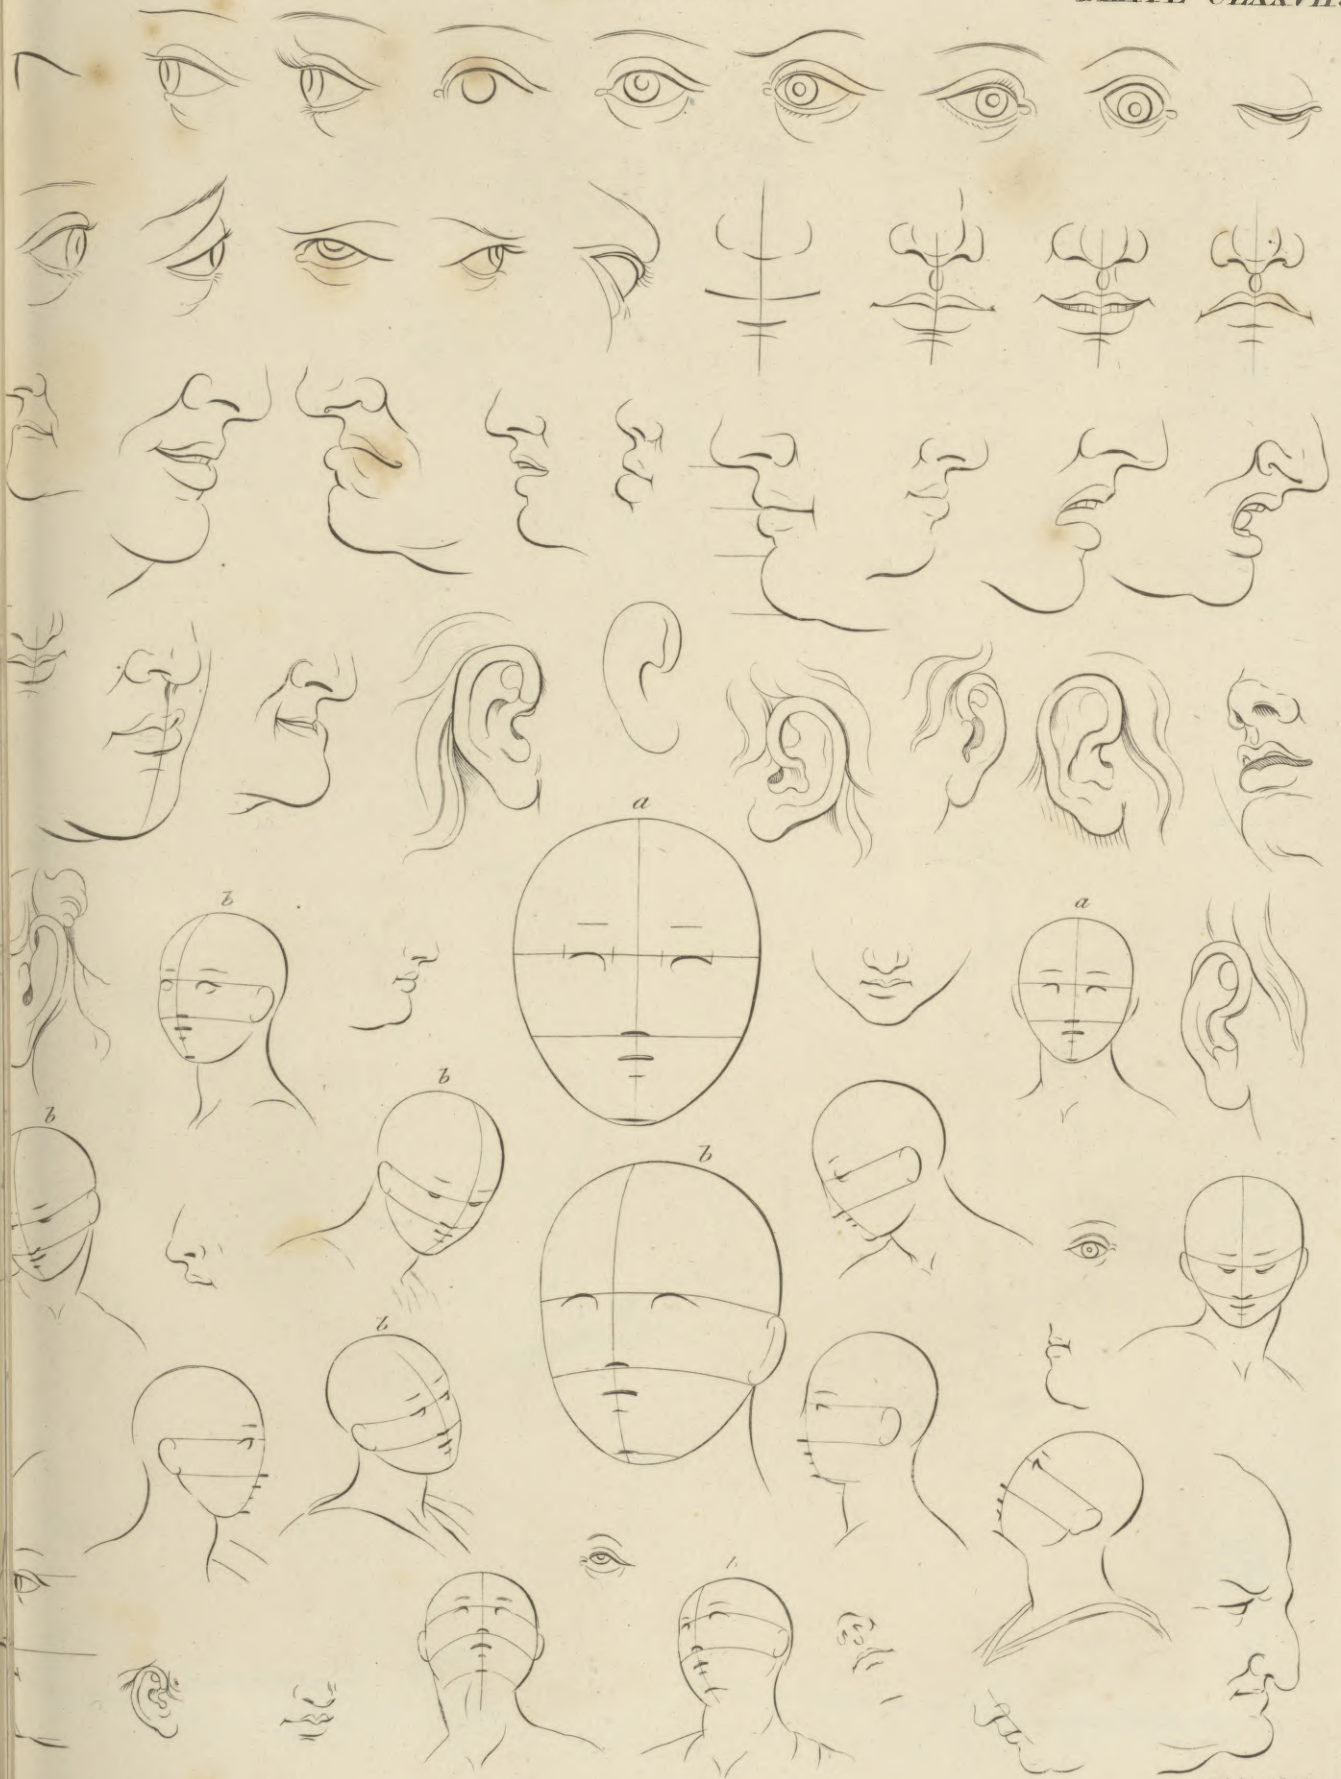 a
b
a
b
b
b
b